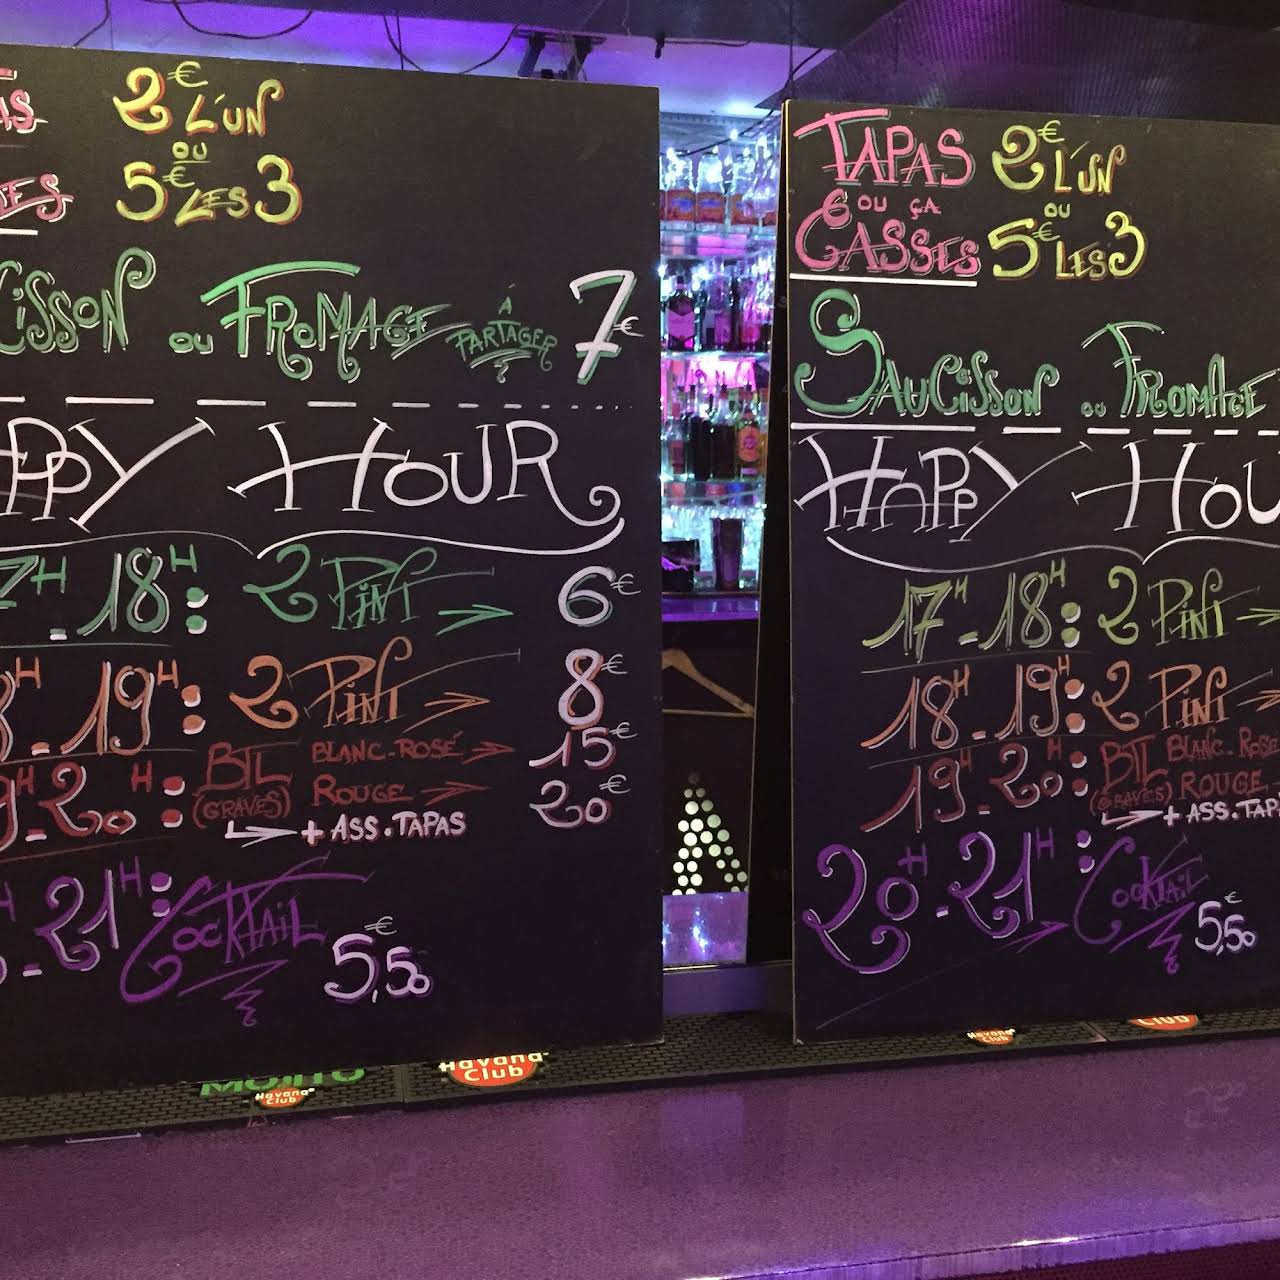 AS 2€ L'UN
OU
5€ LES 3
CISSON OU FROMAGE À PARTAGER 7€
PPY HOUR
7H - 18H : 2 PINT → 6€
H - 19H : 2 PINT → 8€
9H - 20H : BTL (GRAVES) BLANC-ROSÉ → 15€
ROUGE → 20€
→ + ASS. TAPAS
H - 21H : COCKTAIL 5,50€
TAPAS 2€ L'UN
OU ÇA OU
CASSES 5€ LES 3
SAUCISSON OU FROMAGE
HAPPY HOU
17H - 18H : 2 PINT →
18H - 19H : 2 PINT →
19H - 20H : BTL (GRAVES) BLANC-ROSE
ROUGE
→ + ASS. TAP
20H - 21H : COCKTAIL 5,50€
MOJITO
Havana Club
Havana Club
Havana Club
Club